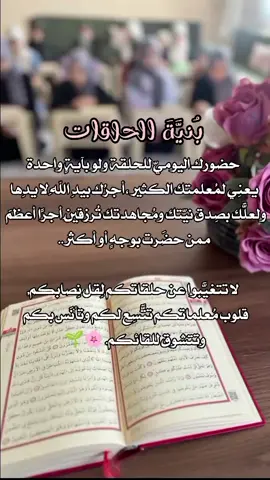 بُنيَّةَ الحلقات
حضورك اليوميّ للحلقة ولو بآية واحدة
يعني لمُعلمتك الكثير، أجرُك بيدِ الله لا يدِها
ولعلَّك بصدق نيّتك ومُجاهدتك تُرزقين أجرًا أعظمَ
ممن حضَرت بوجهٍ أو أكثر..
لا تتغيَّبوا عن حلقاتكم لِقل نِصابكم
قلوب مُعلماتكم تتَّسِع لكم وتأنَس بكم
وتتشوق للقائكم. 🌸🌱